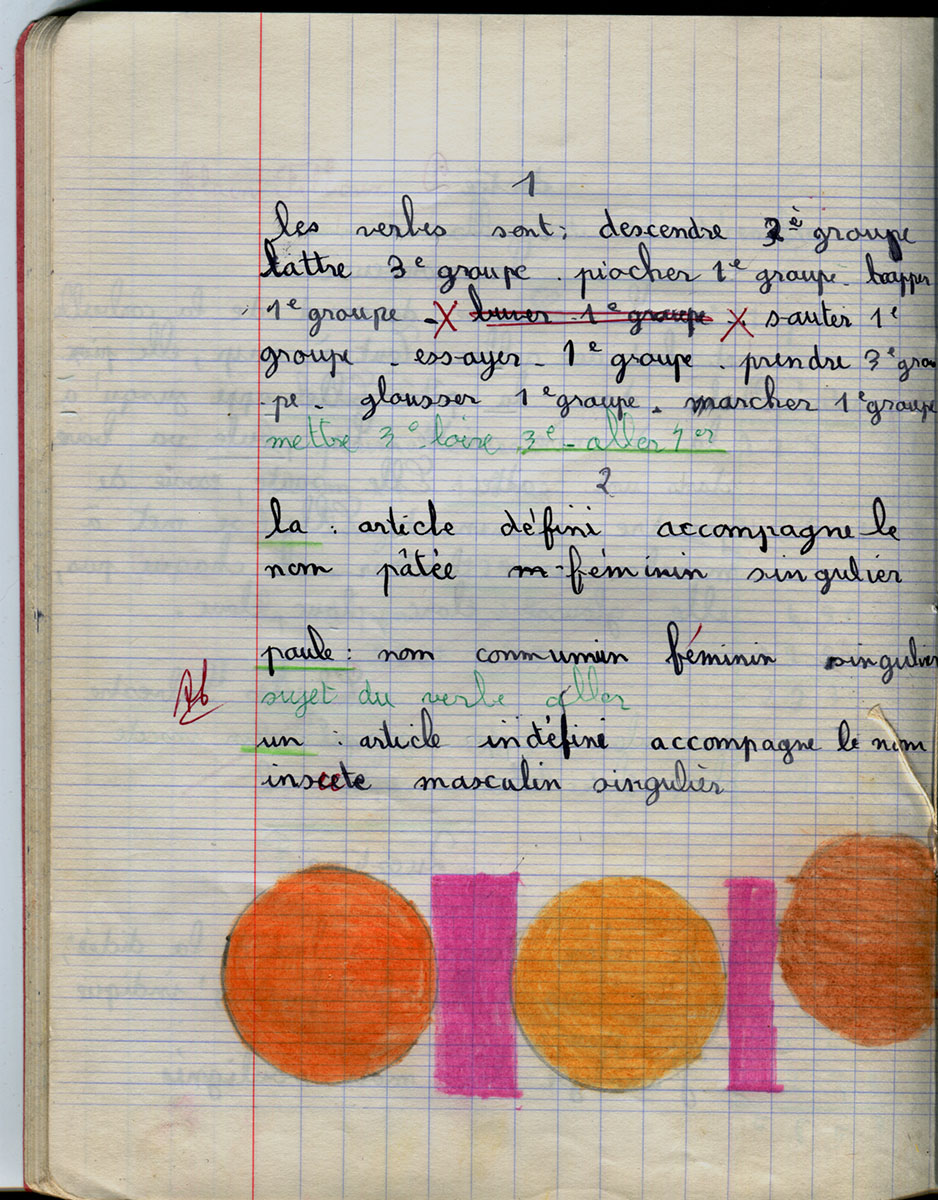 1
les verbes sont; descendre 3è groupe
battre 3e groupe. piocher 1e groupe. happer
1e groupe - X buver 1e groupe X sauter 1e
groupe - essayer - 1e groupe. prendre 3e grou
-pe - glousser 1e groupe. marcher 1e groupe
mettre 3e - boire 3e - aller 1er
2
la : article défini accompagne le
nom pâtée m féminin singulier
poule : nom commumun féminin singulier
Ab
sujet du verbe aller
un : article indéfini accompagne le nom
insecte masculin singulier